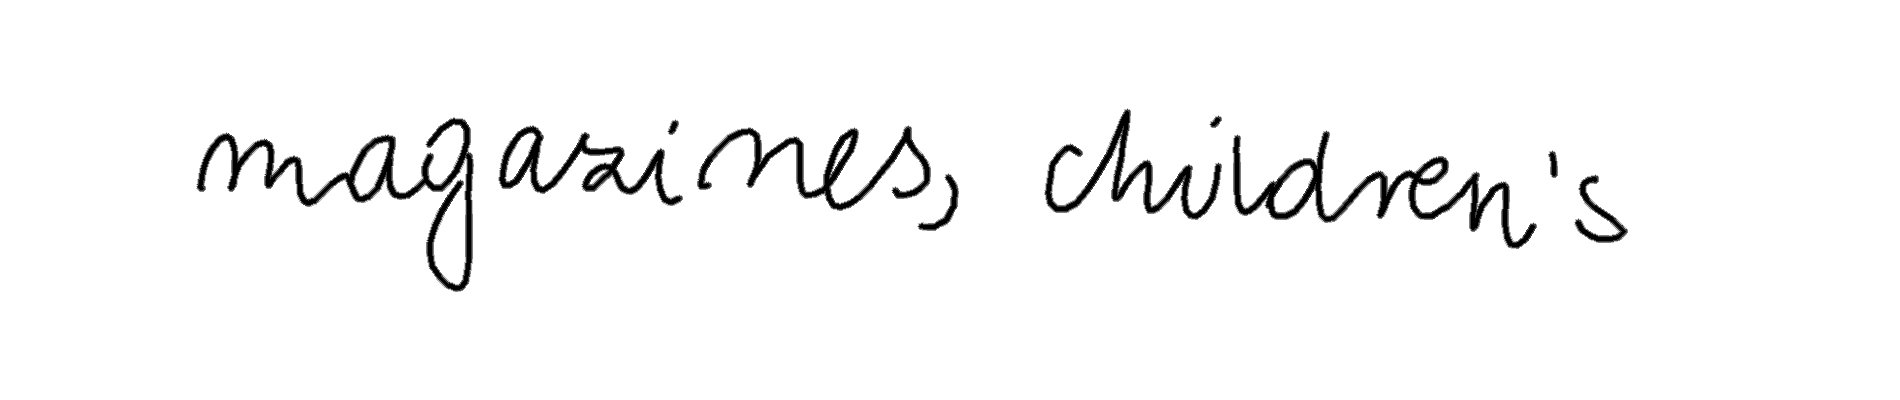 magazines, children's